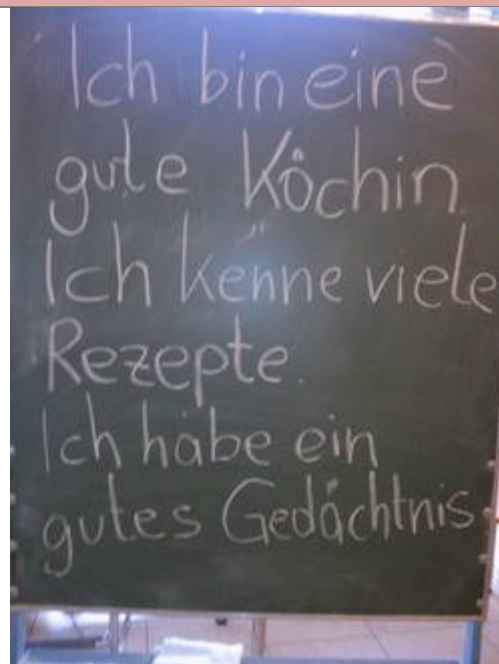 Ich bin eine
gute Köchin.
Ich kenne viele
Rezepte.
Ich habe ein
gutes Gedächtnis.